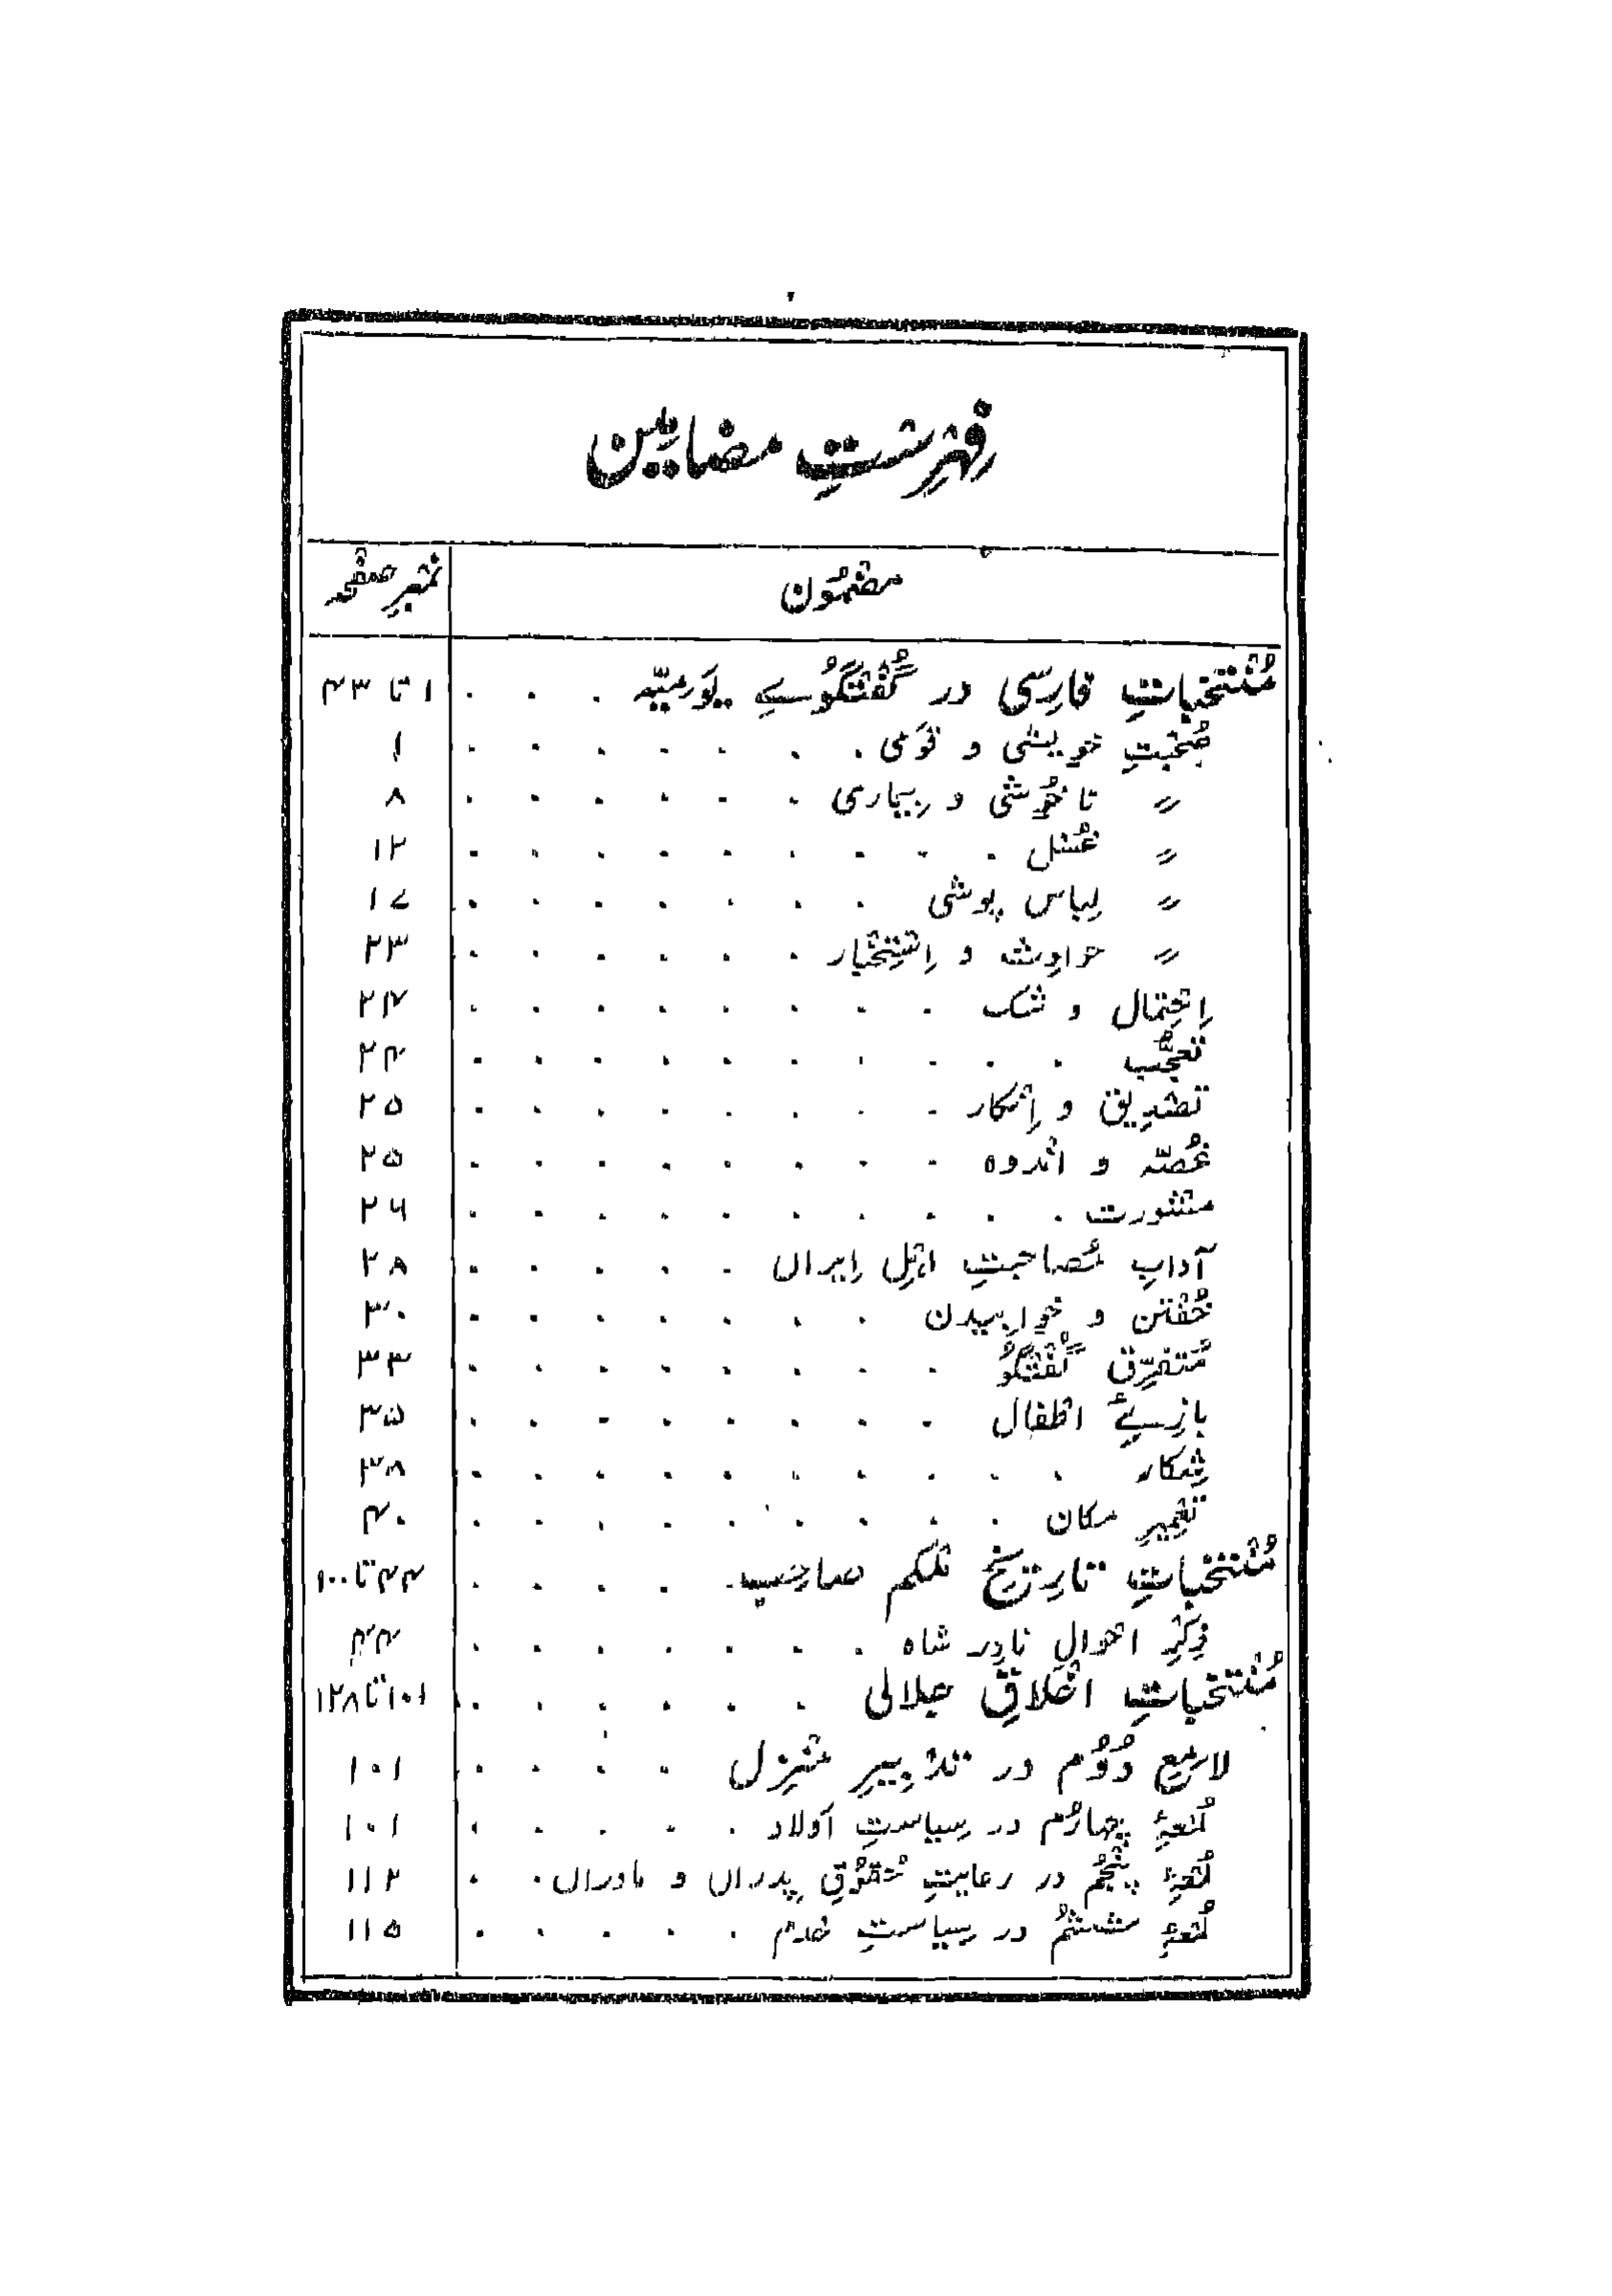 فِہْرِسْتِ مضامین
مضمُون نمبرِ صفْحہ
مُنْتخباتِ فارِسی در گُفْتگُوےِ یَومیّہ . . . ۱ تا ۴۳
صُحْبتِ خویشی و قَومی . . . . . . . ۱
〃 ناخُوشی و بِیماری . . . . . . ۸
〃 غُسْل . . . . . . . . . ۱۲
〃 لِباس پوشی . . . . . . . ۱۷
〃 حوادِث و اِسْتِخْبار . . . . . . ۲۳
اِحْتِمال و شک . . . . . . . . ۲۴
تعجُّب . . . . . . . . . . ۲۴
تصْدِیق و اِنْکار . . . . . . . . ۲۵
غُصّہ و انْدوه . . . . . . . . ۲۵
مشْورت . . . . . . . . . . ۲۶
آدابِ مُصاحبتِ اہْلِ اِیران . . . . . ۲۸
خُفْتن و خوابِیدن . . . . . . . ۳۰
مُتفرِّق گُفْتگُو . . . . . . . . ۳۳
بازِیۓ اطْفال . . . . . . . . ۳۵
شِکار . . . . . . . . . . ۳۸
تعْمِیرِ مکان . . . . . . . . . ۴۰
مُنْتخباتِ تارِیخِ ملْکم صاحِب . . . . . ۴۴ تا ۱۰۰
ذِکْرِ احْوالِ نادِر شاه . . . . . . . ۴۴
مُنْتخباتِ اخْلاقِ جلالی . . . . . . ۱۰۱ تا ۱۲۸
لامِعِ دُوُم در تدْبِیرِ منْزِل . . . . ۱۰۱
لُمعۂِ چہارُم در سِیاستِ اَولاد . . . . . ۱۰۱
لُمعۂِ پنْجُم در رعایتِ حُقُوقِ پِدراں و مادراں . . ۱۱۲
لُمعۂِ ششُم در سِیاستِ خدم . . . . . ۱۱۵